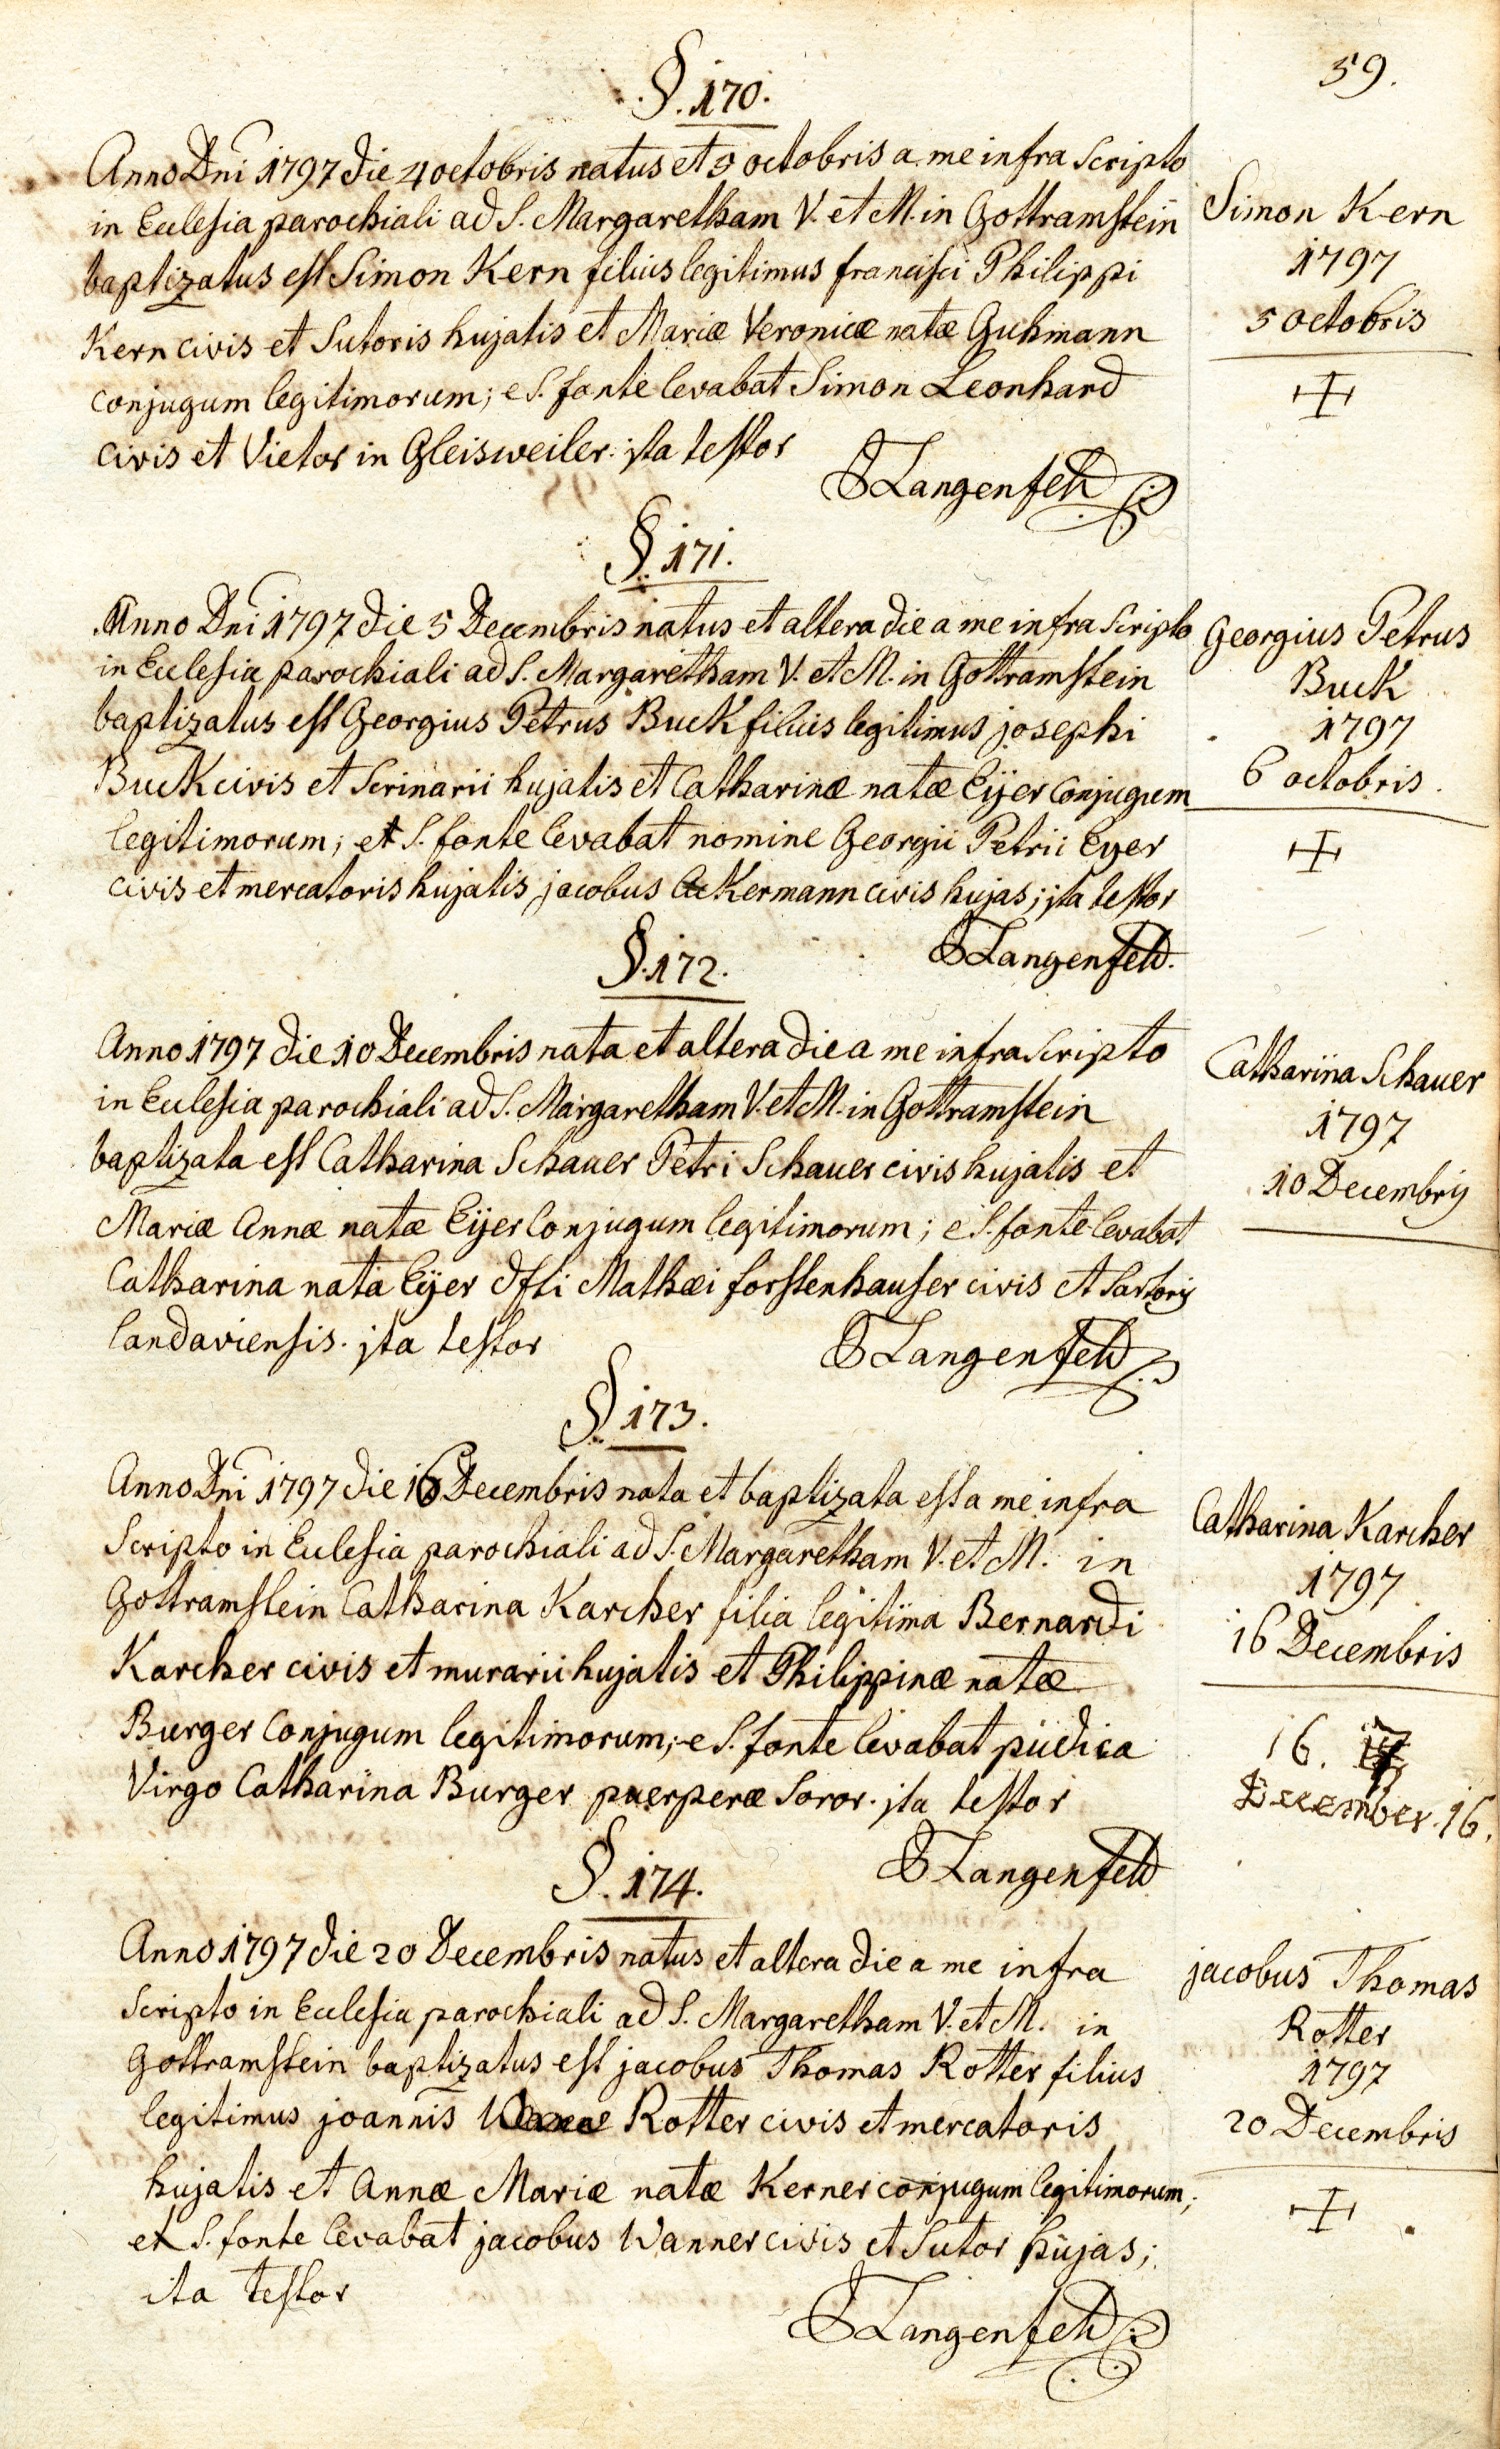 59.
§. 170.
Anno Dni 1797 die 4 octobris natus et 5 octobris a me infra scripto
in Eclesia parochiali ad S. Margaretham V. et M. in Gottramstein
baptizatus est Simon Kern filius legitimus francisci Philippi
Kern civis et Sutoris hujatis et Mariæ Veronicæ natæ Guhmann
conjugum legitimorum; e S. fonte levabat Simon Leonhard
civis et Vietor in Gleisweiler. jta testor
Langenfeld
Simon Kern
1797
5 octobris
§. 171.
Anno Dni 1797 die 5 Decembris natus et altera die a me infra scripto
in Eclesia parochiali ad S. Margaretham V. et M. in Gottramstein
baptizatus est Georgius Petrus Buck filius legitimus josephi
Buck civis et Scrinarii hujatis et Catharinæ natæ Eijer Conjugum
legitimorum; et S. fonte levabat nomine Georgii Petrii Eyer
civis et mercatoris hujatis jacobus Ackermann civis hujas; jta testor
Langenfeld.
Georgius Petrus
Buck
1797
6 octobris.
§. 172.
Anno 1797 die 10 Decembris nata et altera die a me infra scripto
in Eclesia parochiali ad S. Margaretham V. et M. in Gottramstein
baptizata est Catharina Schauer Petri Schauer civis hujatis et
Mariæ Annæ natæ Eijer Conjugum legitimorum; e S. fonte levabat
Catharina nata Eijer dfti Mathæi forstenhauser civis et Sartoris
landaviensis. jta testor
Langenfeld
Catharina Schauer
1797
10 Decembris
§. 173.
Anno Dni 1797 die 16 Decembris nata et baptizata est a me infra
Scripto in Eclesia parochiali ad S. Margaretham V. et M. in
Gottramstein Catharina Karcher filia legitima Bernardi
Karcher civis et murarii hujatis et Philippinæ natæ
Burger Conjugum legitimorum; e S. fonte levabat pudica
Virgo Catharina Burger puerperæ Soror. jta testor
Langenfeld
Catharina Karcher
1797
16 Decembris
16.
December. 16.
§. 174.
Anno 1797 die 20 Decembris natus et altera die a me infra
Scripto in Eclesia parochiali ad S. Margaretham V. et M. in
Gottramstein baptizatus est jacobus Thomas Rotter filius
legitimus joannis Rotter civis et mercatoris
hujatis et Annæ Mariæ natæ Kerner conjugum legitimorum;
ex S. fonte levabat jacobus Wanner civis et Sutor hujas;
ita testor
Langenfeld
jacobus Thomas
Rotter
1797
20 Decembris